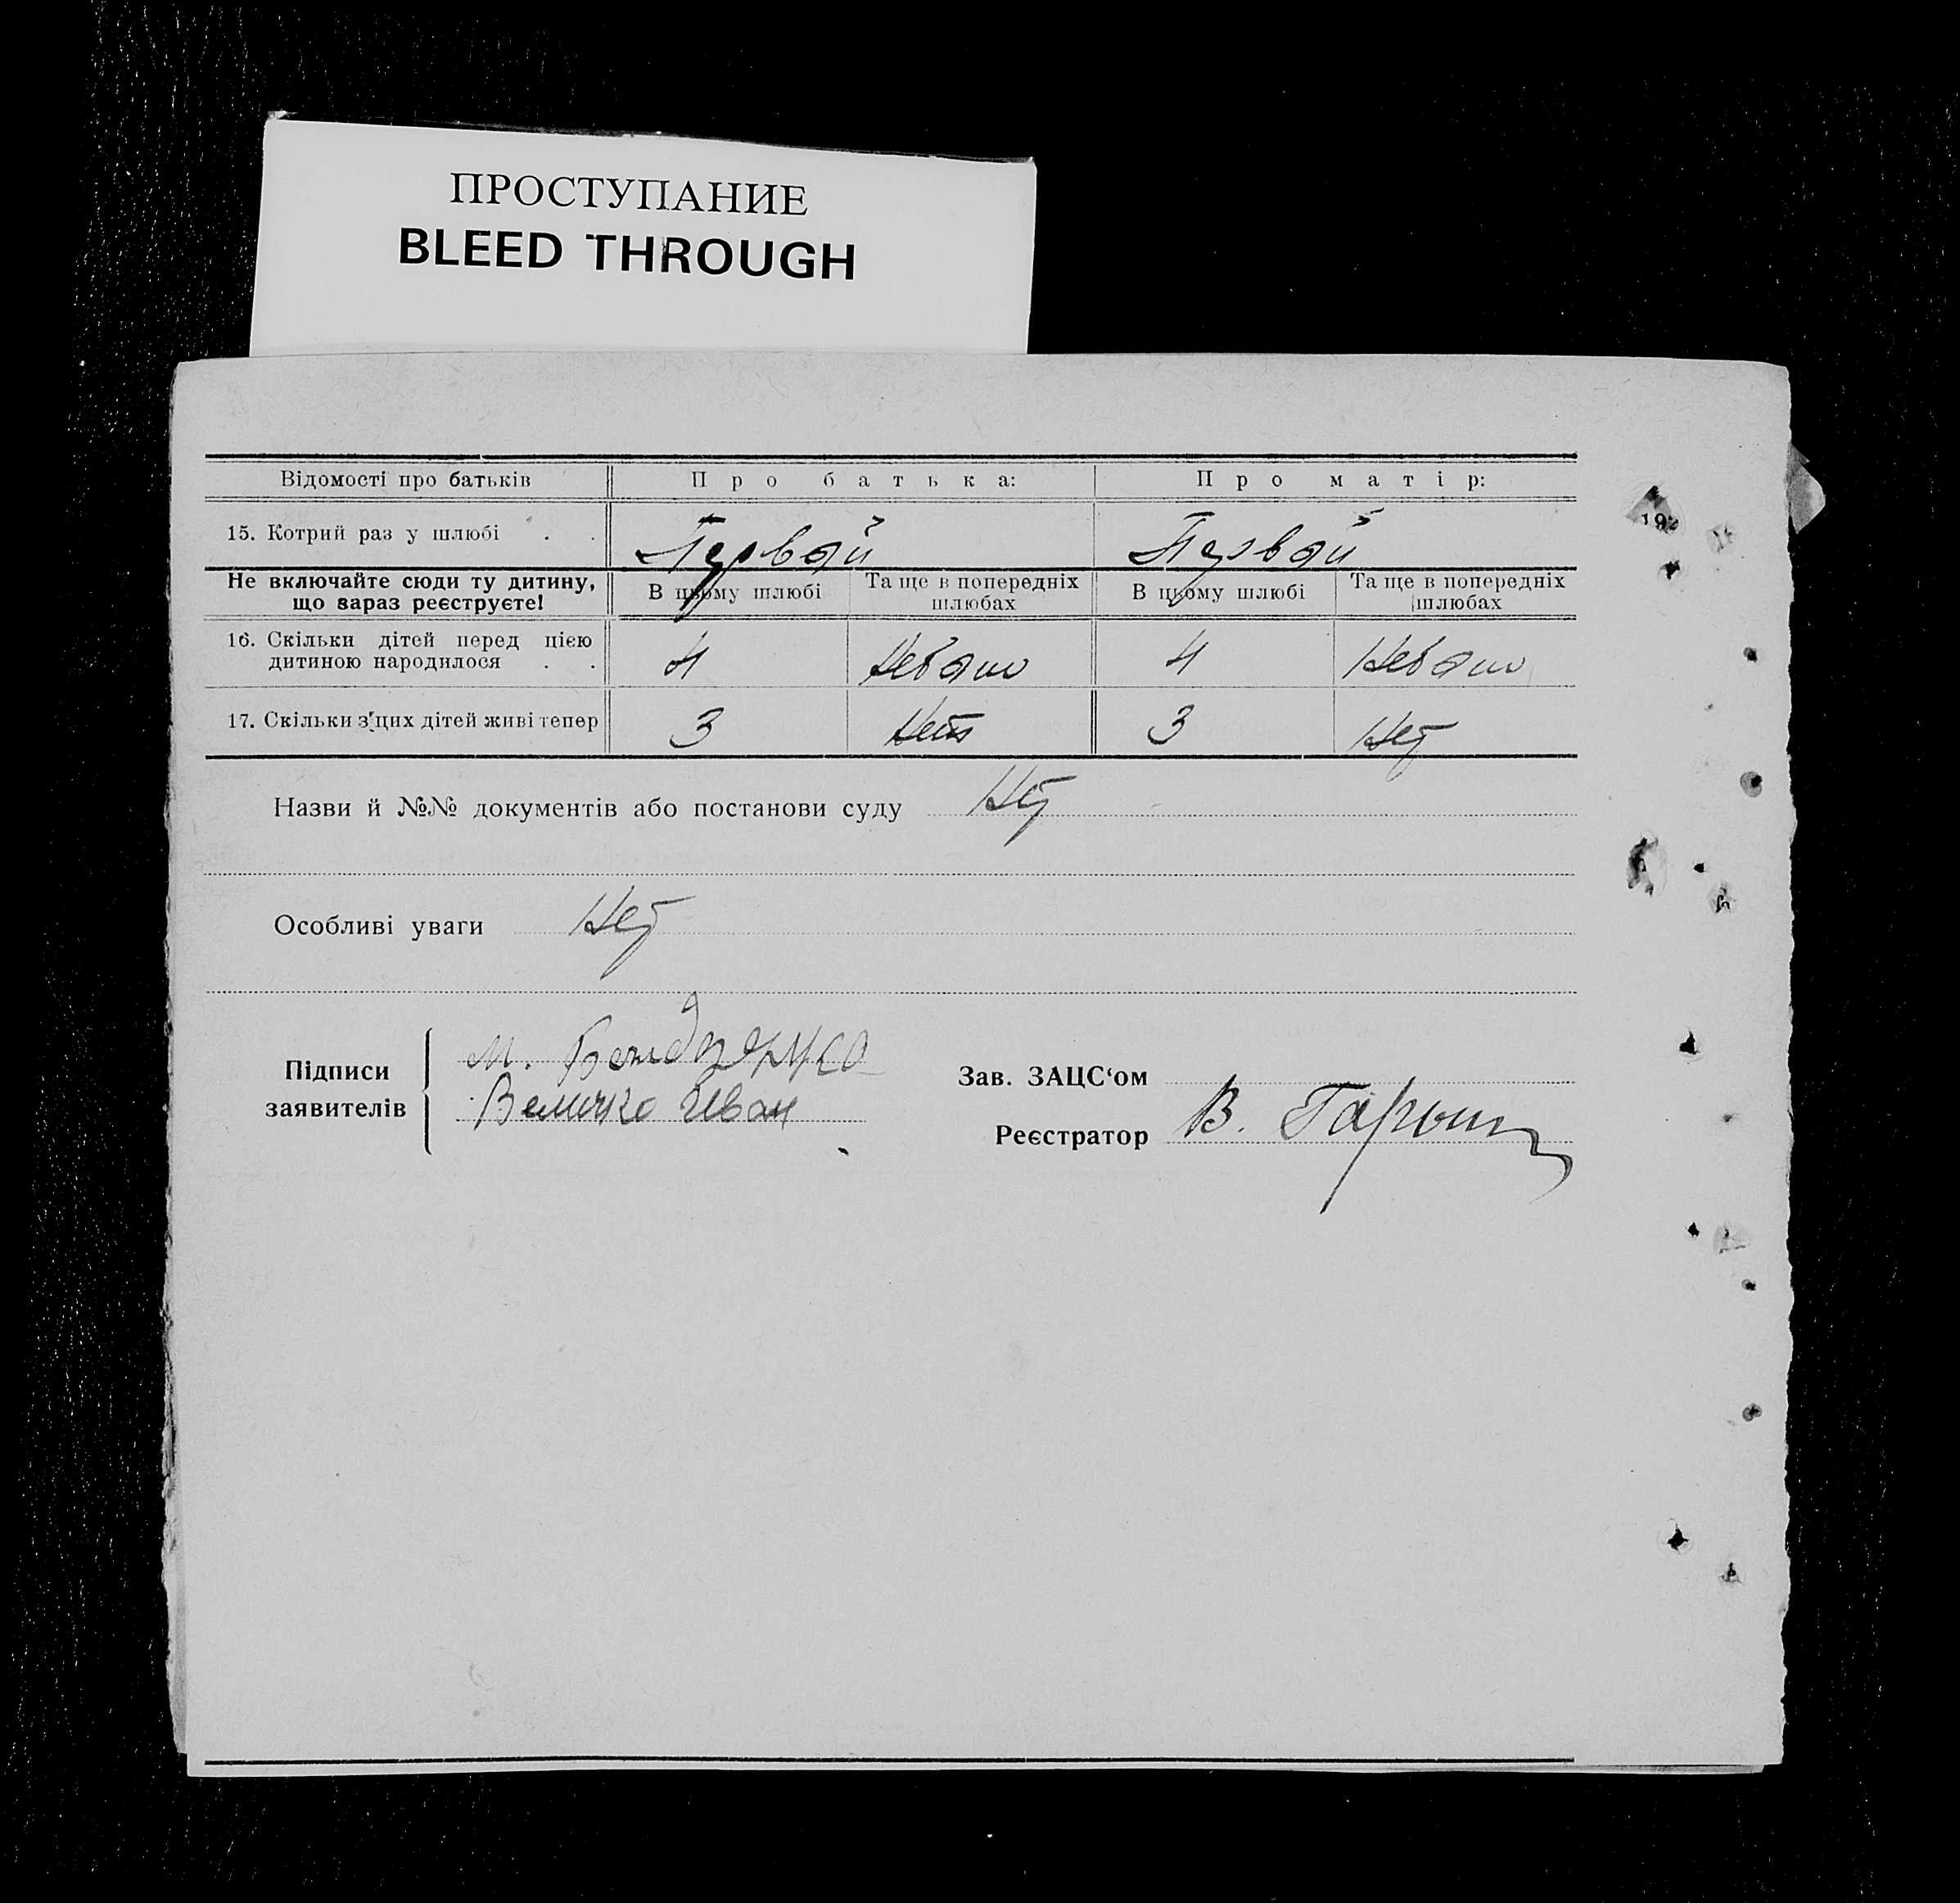 ПРОСТУПАНИЕ
BLEED THROUGH
Відомості про батьків Про батька: Про матір:
15. Котрий раз у шлюбі . . Первой Первой
Не включайте сюди ту дитину, що зараз реєструєте! В цьому шлюбі Та ще в попередніх шлюбах В цьому шлюбі Та ще в попередніх шлюбах
16. Скільки дітей перед цією дитиною народилося . . 4 4
17. Скільки з цих дітей живі тепер 3 Нет 3 Нет
Назви й №№ документів або постанови суду Нет
Особливі уваги Нет
Підписи заявителів М.
Величко Иван
Зав. ЗАЦС‘ом
Реєстратор В.
192